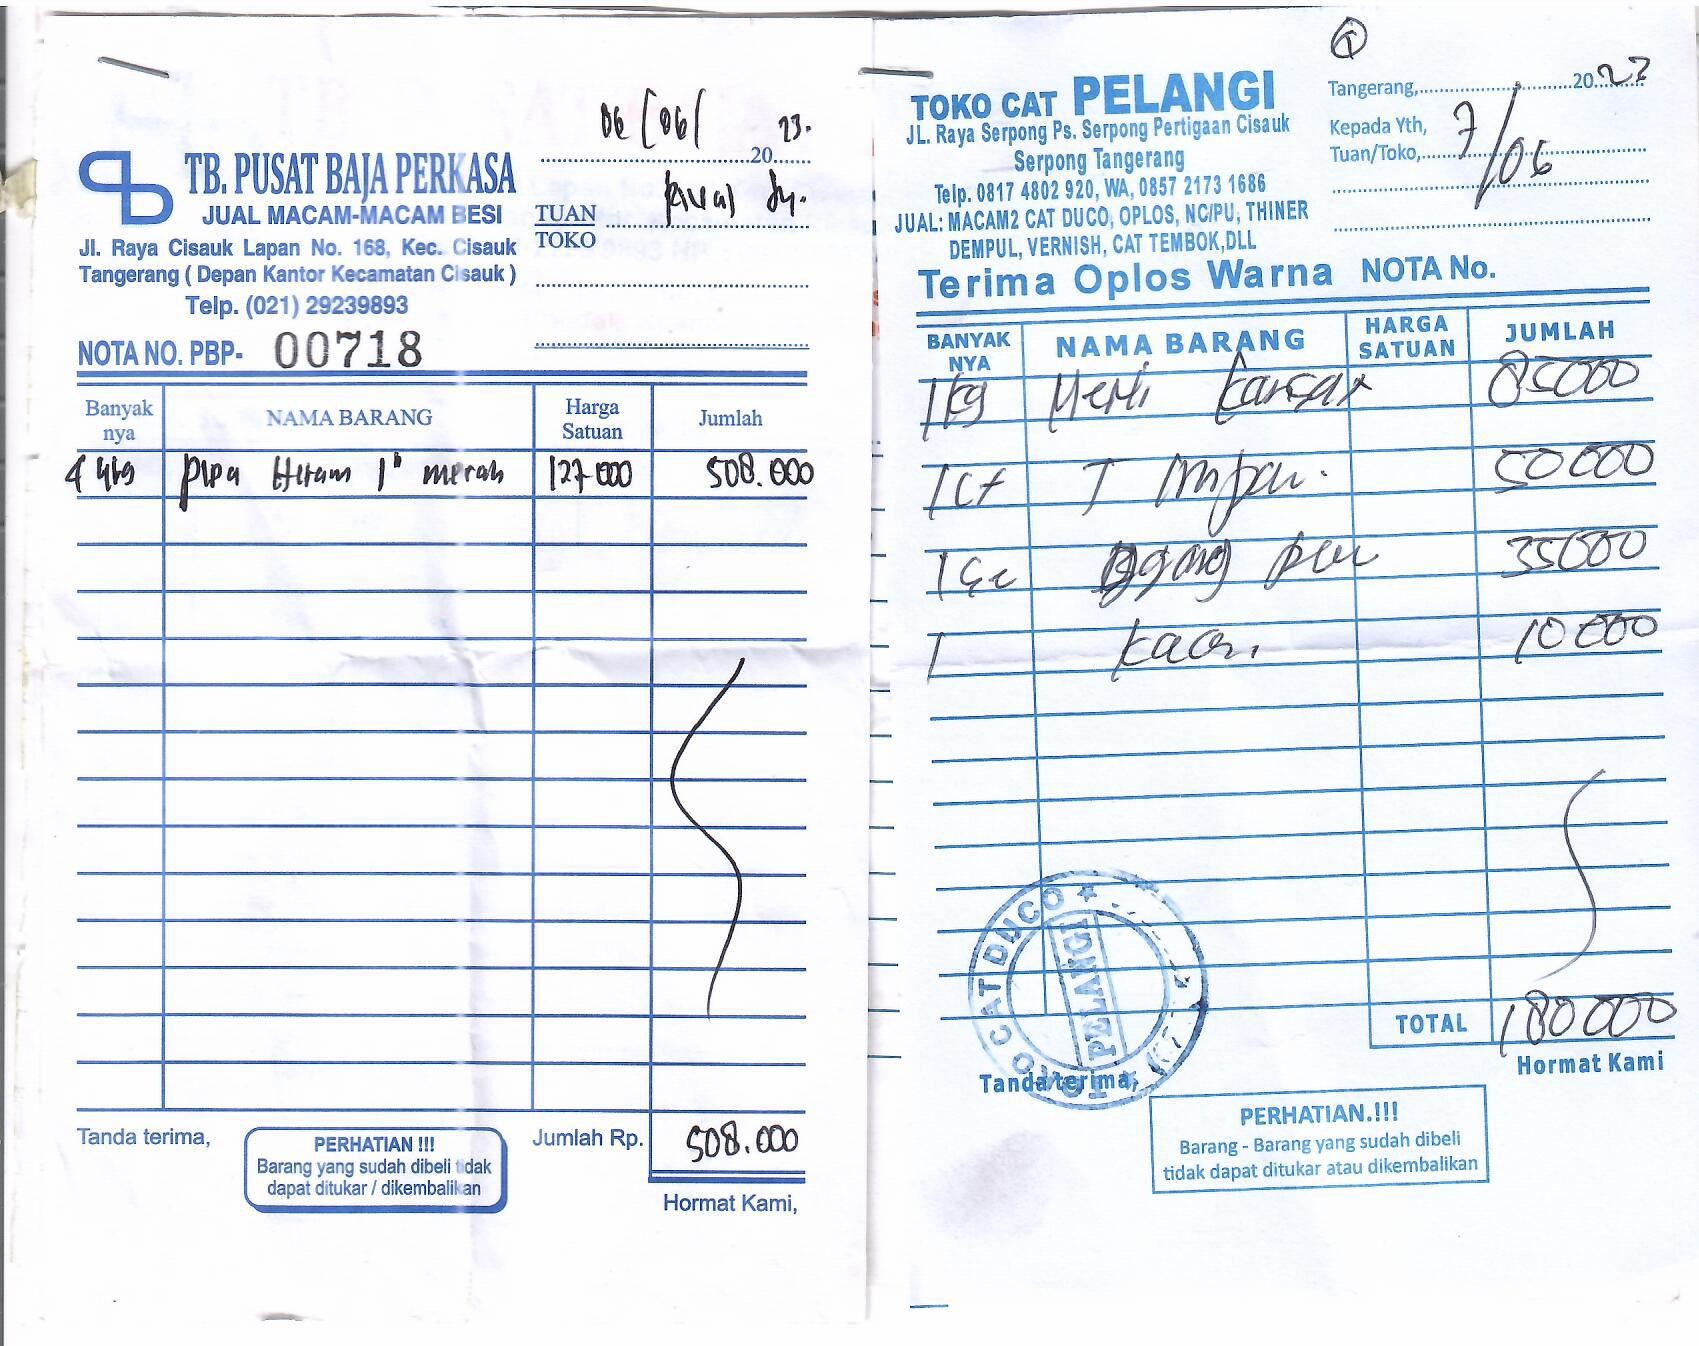 06/06/ 2023.
TB. PUSAT BAJA PERKASA
JUAL MACAM-MACAM BESI
Jl. Raya Cisauk Lapan No. 168, Kec. Cisauk
Tangerang ( Depan Kantor Kecamatan Cisauk )
Telp. (021) 29239893
TUAN
TOKO
NOTA NO. PBP- 00718
Banyak nya NAMA BARANG Harga Satuan Jumlah
4 pipa Hitam 1" merah 127.000 508.000
Tanda terima,
PERHATIAN !!!
Barang yang sudah dibeli tidak
dapat ditukar / dikembalikan
Jumlah Rp. 508.000
Hormat Kami,
TOKO CAT PELANGI
JL. Raya Serpong Ps. Serpong Pertigaan Cisauk
Serpong Tangerang
Telp. 0817 4802 920, WA, 0857 2173 1686
JUAL: MACAM2 CAT DUCO, OPLOS, NC/PU, THINER
DEMPUL, VERNISH, CAT TEMBOK,DLL
Terima Oplos Warna NOTA No.
Tangerang, 2023
Kepada Yth,
Tuan/Toko, 7/06
BANYAK NYA NAMA BARANG HARGA SATUAN JUMLAH
1 kg 85000
1 50000
1 35000
1 10000
TOTAL 180000
TOKO CAT DUCO
PELANGI
Tanda terima,
Hormat Kami
PERHATIAN.!!!
Barang - Barang yang sudah dibeli
tidak dapat ditukar atau dikembalikan